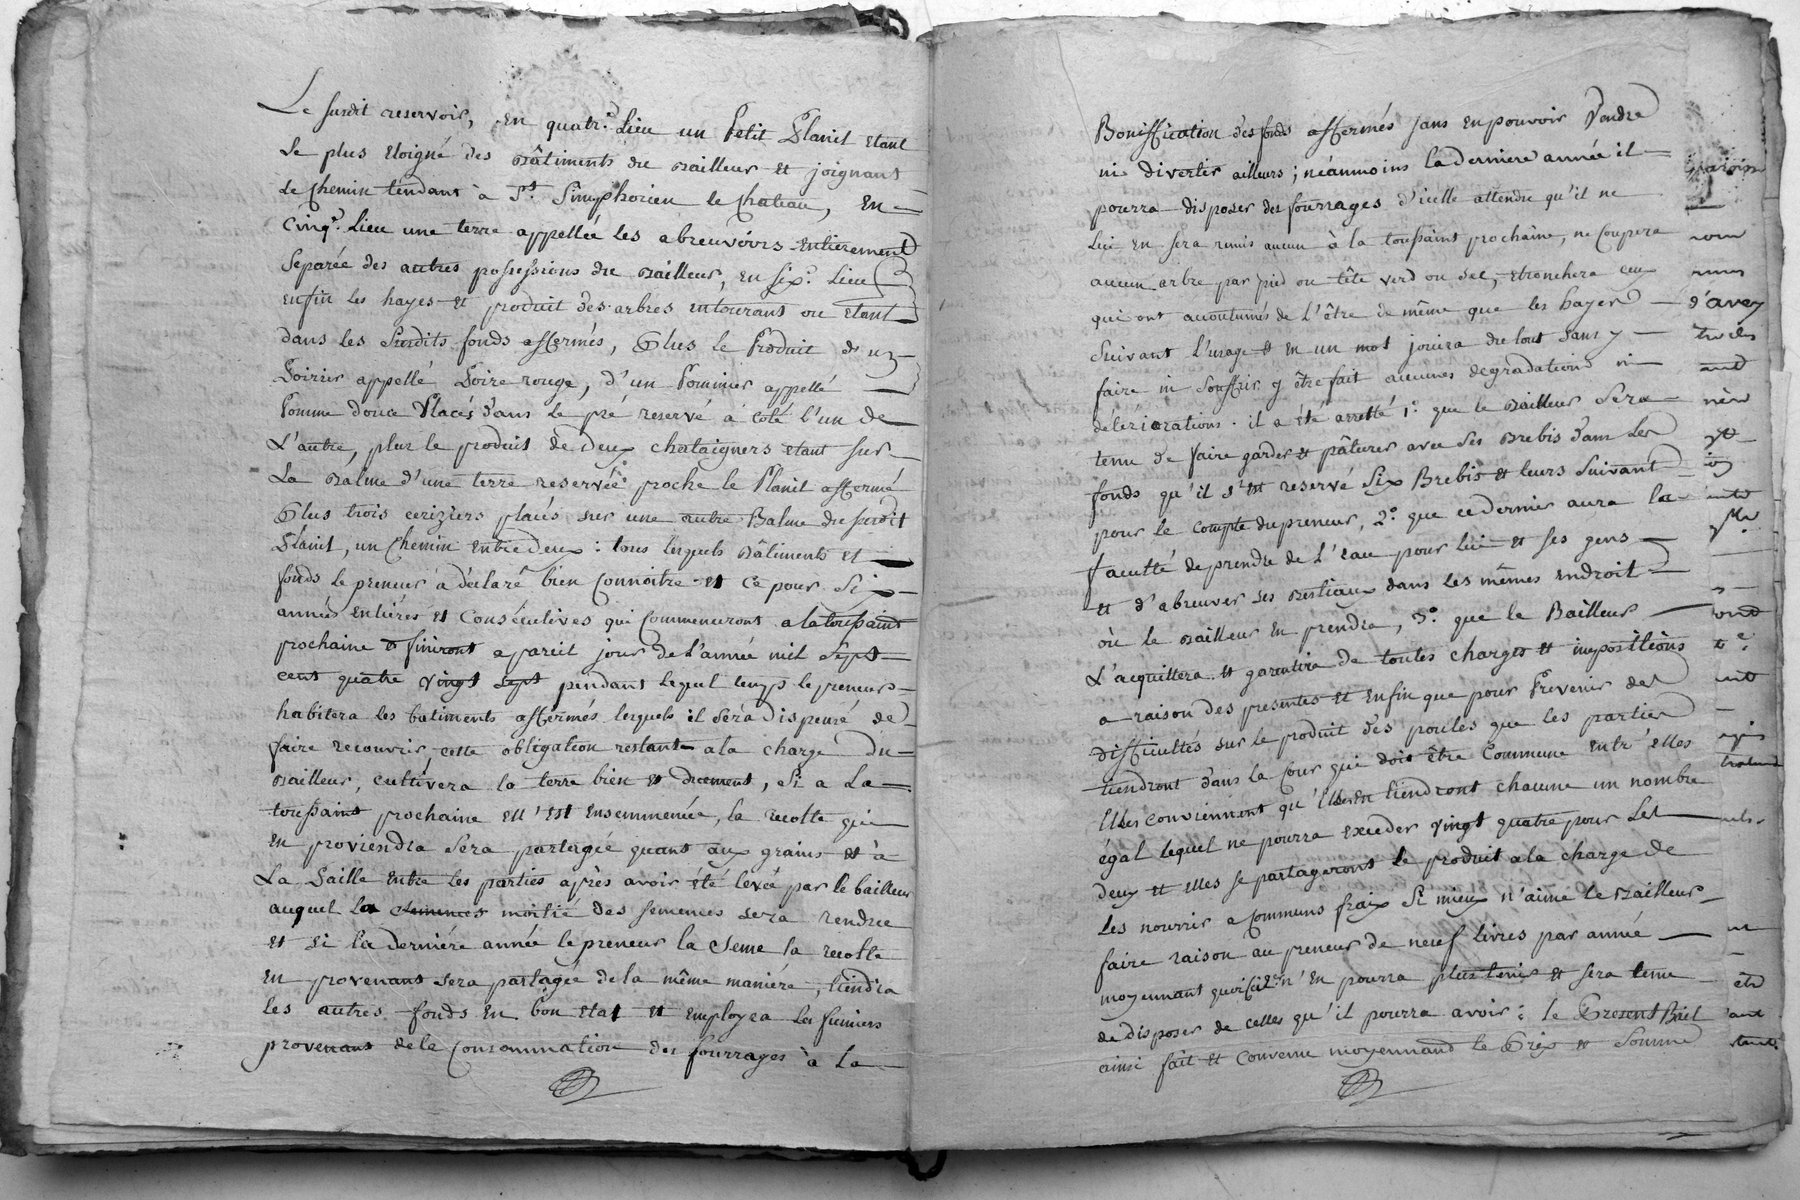 Le susdit reservoir, en quatr.e Lieu un Petit Planil etant
le plus eloigné des Bâtiments du Bailleur et joignant
le chemin tendant à St. Simphorien le chateau, En
Cinq.e Lieu une terre appellée les abreuvoirs entierement
Separée des autres possessions du Bailleur, en six.e Lieu
enfin les hayes et produit des arbres entourans ou etant
dans les Susdits fonds affermés, Plus le Produit d'un
Poirier appellé Poire rouge, d'un Pommier appellé
Pomme Douce Placés Dans le pré reservé a coté l'un de
L'autre, plus le produit de Deux chataigners etant sur
La Balme d'une terre reservée proche le Planil affermé
Plus trois ceriziers placés sur une autre Balme du susdit
Planil, un Chemin Entredeux : tous lesquels Bâtiments et
fonds le preneur a déclaré bien Connoitre et ce pour Six
années entières et Consécutives qui Commenceront a la toussaint
prochaine & finiront a pareil jour de l'année mil Sept
cent quatre vingt Sept pendant lequel temps le preneur
habitera les batiments affermés lesquels il sera Dispensé de
faire recouvrir cette obligation restante a la charge du
Bailleur, cultivera la terre bien et duement, si a La
toussaint prochaine ell'est ensemmencée, la recolte qui
en proviendra Sera partagée quant aux grains et à
La Paille Entre les parties après avoir été levée par le bailleur
auquel la semences moitié des semences sera rendue
et si la derniére année le preneur la Seme la recolte
en provenant sera partagée de la même maniére, tiendra
les autres fonds en bon etat et employea les fumiers
provenants de la Consommation des fourrages à La
Bonification des fonds affermés sans en pouvoir Vendre
ni divertir ailleurs ; néanmoins la derniere année il
pourra disposer des fourrages d'icelle attendu qu'il ne
lui en sera remis aucun à la toussaint prochaine, ne Coupera
aucun arbre par pied ou tête verd ou sec, etronchera ceux
qui ont acoutumés de L'être de même que les hayes
Suivant l'usage et en un mot jouira du tout Sans y
faire ni Souffrir y être fait aucunes degradations ni
détériorations. il a été arretté 1.o que le Bailleur Sera
tenu de faire garder et pâturer avec Ses Brebis dans les
fonds qu'il s'est reservé Six Brebis et leurs Suivant
pour le compte du preneur, 2.o que ce dernier aura la
faculté de prendre de L'eau pour lui et ses gens
et d'abreuver ses Bestiaux dans les mêmes endroit
où le Bailleur en prendra, 3.o que le Bailleur
L'acquittera et garantira de toutes charges et impositions
a raison des presentes et Enfin que pour Prevenir des
difficultés sur le produit des poules que les parties
tiendront dans la Cour qui doit être Commune entr'elles
Elles conviennent qu'Elles en tiendront chacune un nombre
égal lequel ne pourra exceder vingt quatre pour les
deux et elles se partageront le produit a la charge de
les nourrir a communs frax Si mieux n'aime le Bailleur
faire raison au preneur de neuf livres par année
moyennant quoi il n'en pourra plus tenir et sera tenu
de disposer de celles qu'il pourra avoir : le Present Bail
ainsi fait et Convenu moyennand le Prix et Somme